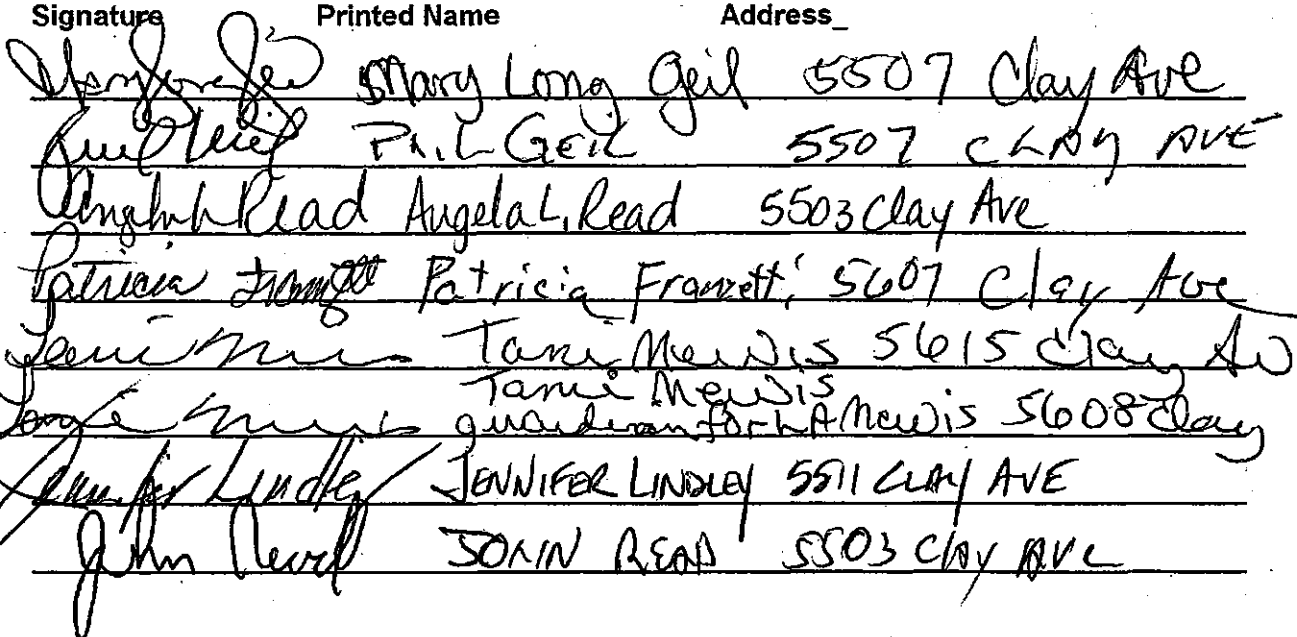 Signature Printed Name Address_
Mary Long Geil 5507 Clay Ave
PhiL GEiL 5507 CLAy AVE
Read Angela L. Read 5503 Clay Ave
Patricia Franzetti Patricia Franzetti 5607 Clay Ave
Tami Mewis 5615 Clay Av
Tami Mewis
guardian for LA Mewis 5608 Clay
Jennifer Lindley JENNIFER LINDLEY 5511 CLAY AVE
John Read JOHN READ 5503 Clay AVE